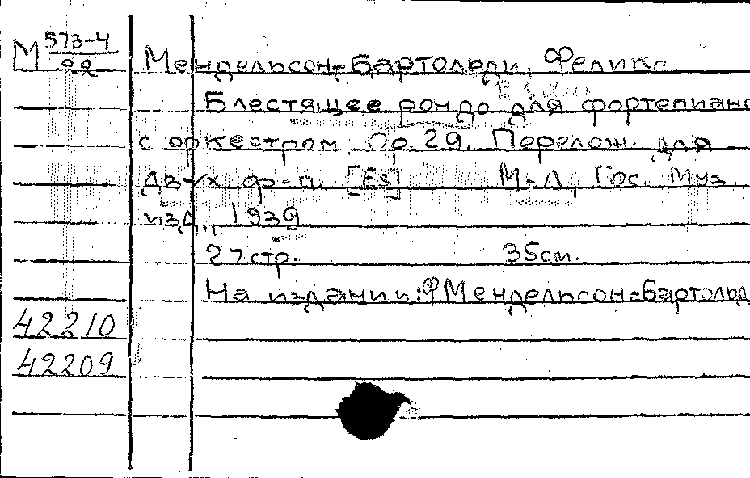 М 573-4
92
Мендельсон-Бартольди, Феликс
Блестящее рондо для фортепиано
с оркестром. Op. 29. Перелож. для
двух ф-п. [Es] М-Л, Гос. Муз.
изд., 1939
27 стр. 35 см.
На издании: Ф Мендельсон-Бартольд
42210
42209